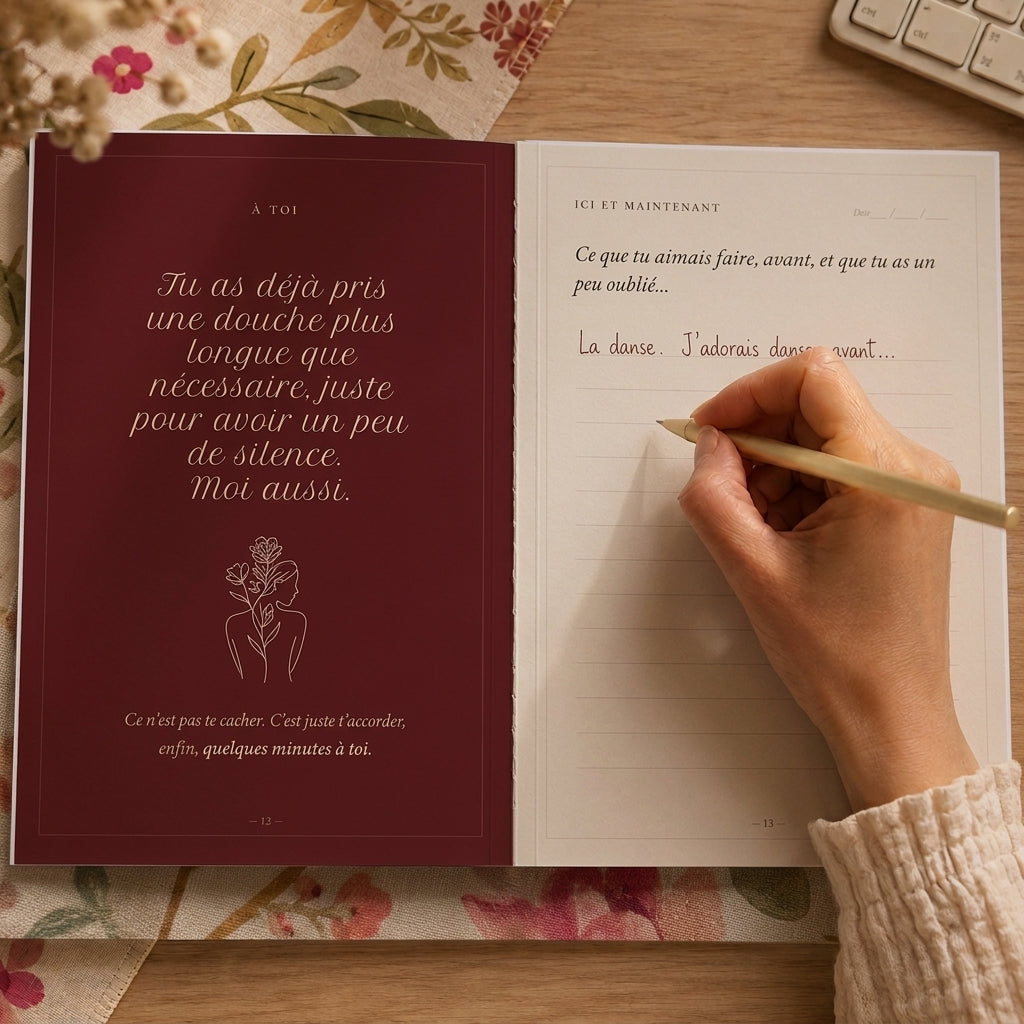 À TOI
Tu as déjà pris
une douche plus
longue que
nécessaire, juste
pour avoir un peu
de silence.
Moi aussi.
Ce n'est pas te cacher. C'est juste t'accorder,
enfin, quelques minutes à toi.
— 13 —
ICI ET MAINTENANT
Ce que tu aimais faire, avant, et que tu as un
peu oublié...
La danse. J'adorais danser avant...
— 13 —
ctrl